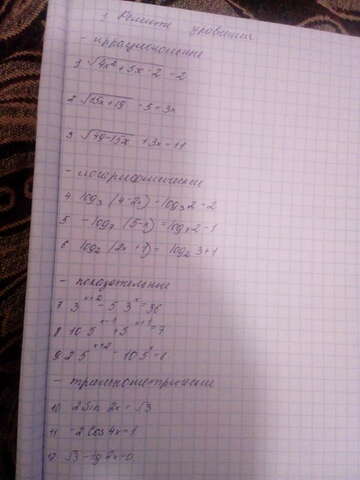 1. Решите уровнения
- иррациональные
1 √4x²+5x-2 = 2
2 √15x+19 - 5 = 3x
3 √49-15x + 3x = 11
- логарифмические
4 log₃ (4-2x) - log₃2 = 2
5 - log₇ (5-x) = log₇2 - 1
6 log₂ (2x+1) = log₂ 3 + 1
- показательные
7 3ˣ⁺² - 5 3ˣ = 36
8 10 5ˣ⁻¹ + 5ˣ⁺¹ = 7
9 2 5ˣ⁺² - 10 5ˣ = 8
- тригонометрические
10 2sin 2x = √3
11 -2cos 4x = 1
12 √3 - tg 2x = 0